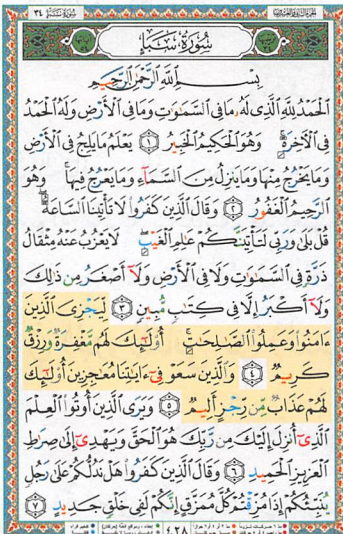 سُورَةُ سَبَإٍ ٣٤
سُورَةُ سَبَإٍ
بِسْمِ ٱللَّهِ ٱلرَّحْمَٰنِ ٱلرَّحِيمِ
ٱلْحَمْدُ لِلَّهِ ٱلَّذِى لَهُۥ مَا فِى ٱلسَّمَٰوَٰتِ وَمَا فِى ٱلْأَرْضِ وَلَهُ ٱلْحَمْدُ
فِى ٱلْأٓخِرَةِۚ وَهُوَ ٱلْحَكِيمُ ٱلْخَبِيرُ ١ يَعْلَمُ مَا يَلِجُ فِى ٱلْأَرْضِ
وَمَا يَخْرُجُ مِنْهَا وَمَا يَنزِلُ مِنَ ٱلسَّمَآءِ وَمَا يَعْرُجُ فِيهَاۚ وَهُوَ
ٱلرَّحِيمُ ٱلْغَفُورُ ٢ وَقَالَ ٱلَّذِينَ كَفَرُوا۟ لَا تَأْتِينَا ٱلسَّاعَةُۖ
قُلْ بَلَىٰ وَرَبِّى لَتَأْتِيَنَّكُمْ عَٰلِمِ ٱلْغَيْبِۖ لَا يَعْزُبُ عَنْهُ مِثْقَالُ
ذَرَّةٍ فِى ٱلسَّمَٰوَٰتِ وَلَا فِى ٱلْأَرْضِ وَلَآ أَصْغَرُ مِن ذَٰلِكَ
وَلَآ أَكْبَرُ إِلَّا فِى كِتَٰبٍ مُّبِينٍ ٣ لِّيَجْزِىَ ٱلَّذِينَ
ءَامَنُوا۟ وَعَمِلُوا۟ ٱلصَّٰلِحَٰتِۚ أُو۟لَٰٓئِكَ لَهُم مَّغْفِرَةٌ وَرِزْقٌ
كَرِيمٌ ٤ وَٱلَّذِينَ سَعَوْ فِىٓ ءَايَٰتِنَا مُعَٰجِزِينَ أُو۟لَٰٓئِكَ
لَهُمْ عَذَابٌ مِّن رِّجْزٍ أَلِيمٌ ٥ وَيَرَى ٱلَّذِينَ أُوتُوا۟ ٱلْعِلْمَ
ٱلَّذِىٓ أُنزِلَ إِلَيْكَ مِن رَّبِّكَ هُوَ ٱلْحَقَّ وَيَهْدِىٓ إِلَىٰ صِرَٰطِ
ٱلْعَزِيزِ ٱلْحَمِيدِ ٦ وَقَالَ ٱلَّذِينَ كَفَرُوا۟ هَلْ نَدُلُّكُمْ عَلَىٰ رَجُلٍ
يُنَبِّئُكُمْ إِذَا مُزِّقْتُمْ كُلَّ مُمَزَّقٍ إِنَّكُمْ لَفِى خَلْقٍ جَدِيدٍ ٧
٤٢٨